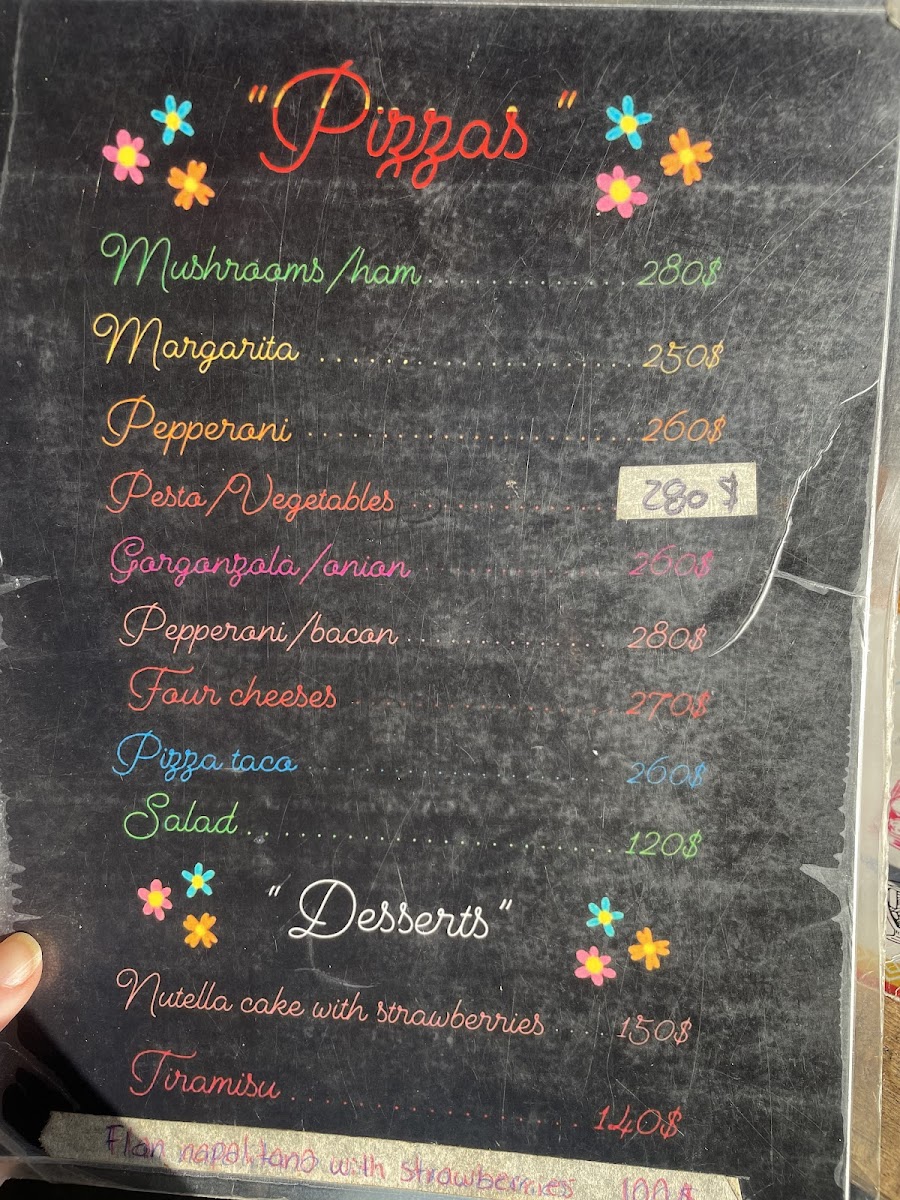 "Pizzas"
Mushrooms/ham.............280$
Margarita.................250$
Pepperoni.................260$
Pesto/Vegetables..........280 $
Gorgonzola/onion..........260$
Pepperoni/bacon...........280$
Four cheeses..............270$
Pizza taco................260$
Salad.....................120$
"Desserts"
Nutella cake with strawberries.....150$
Tiramisu..................140$
Flan napolitano with strawberries 100$